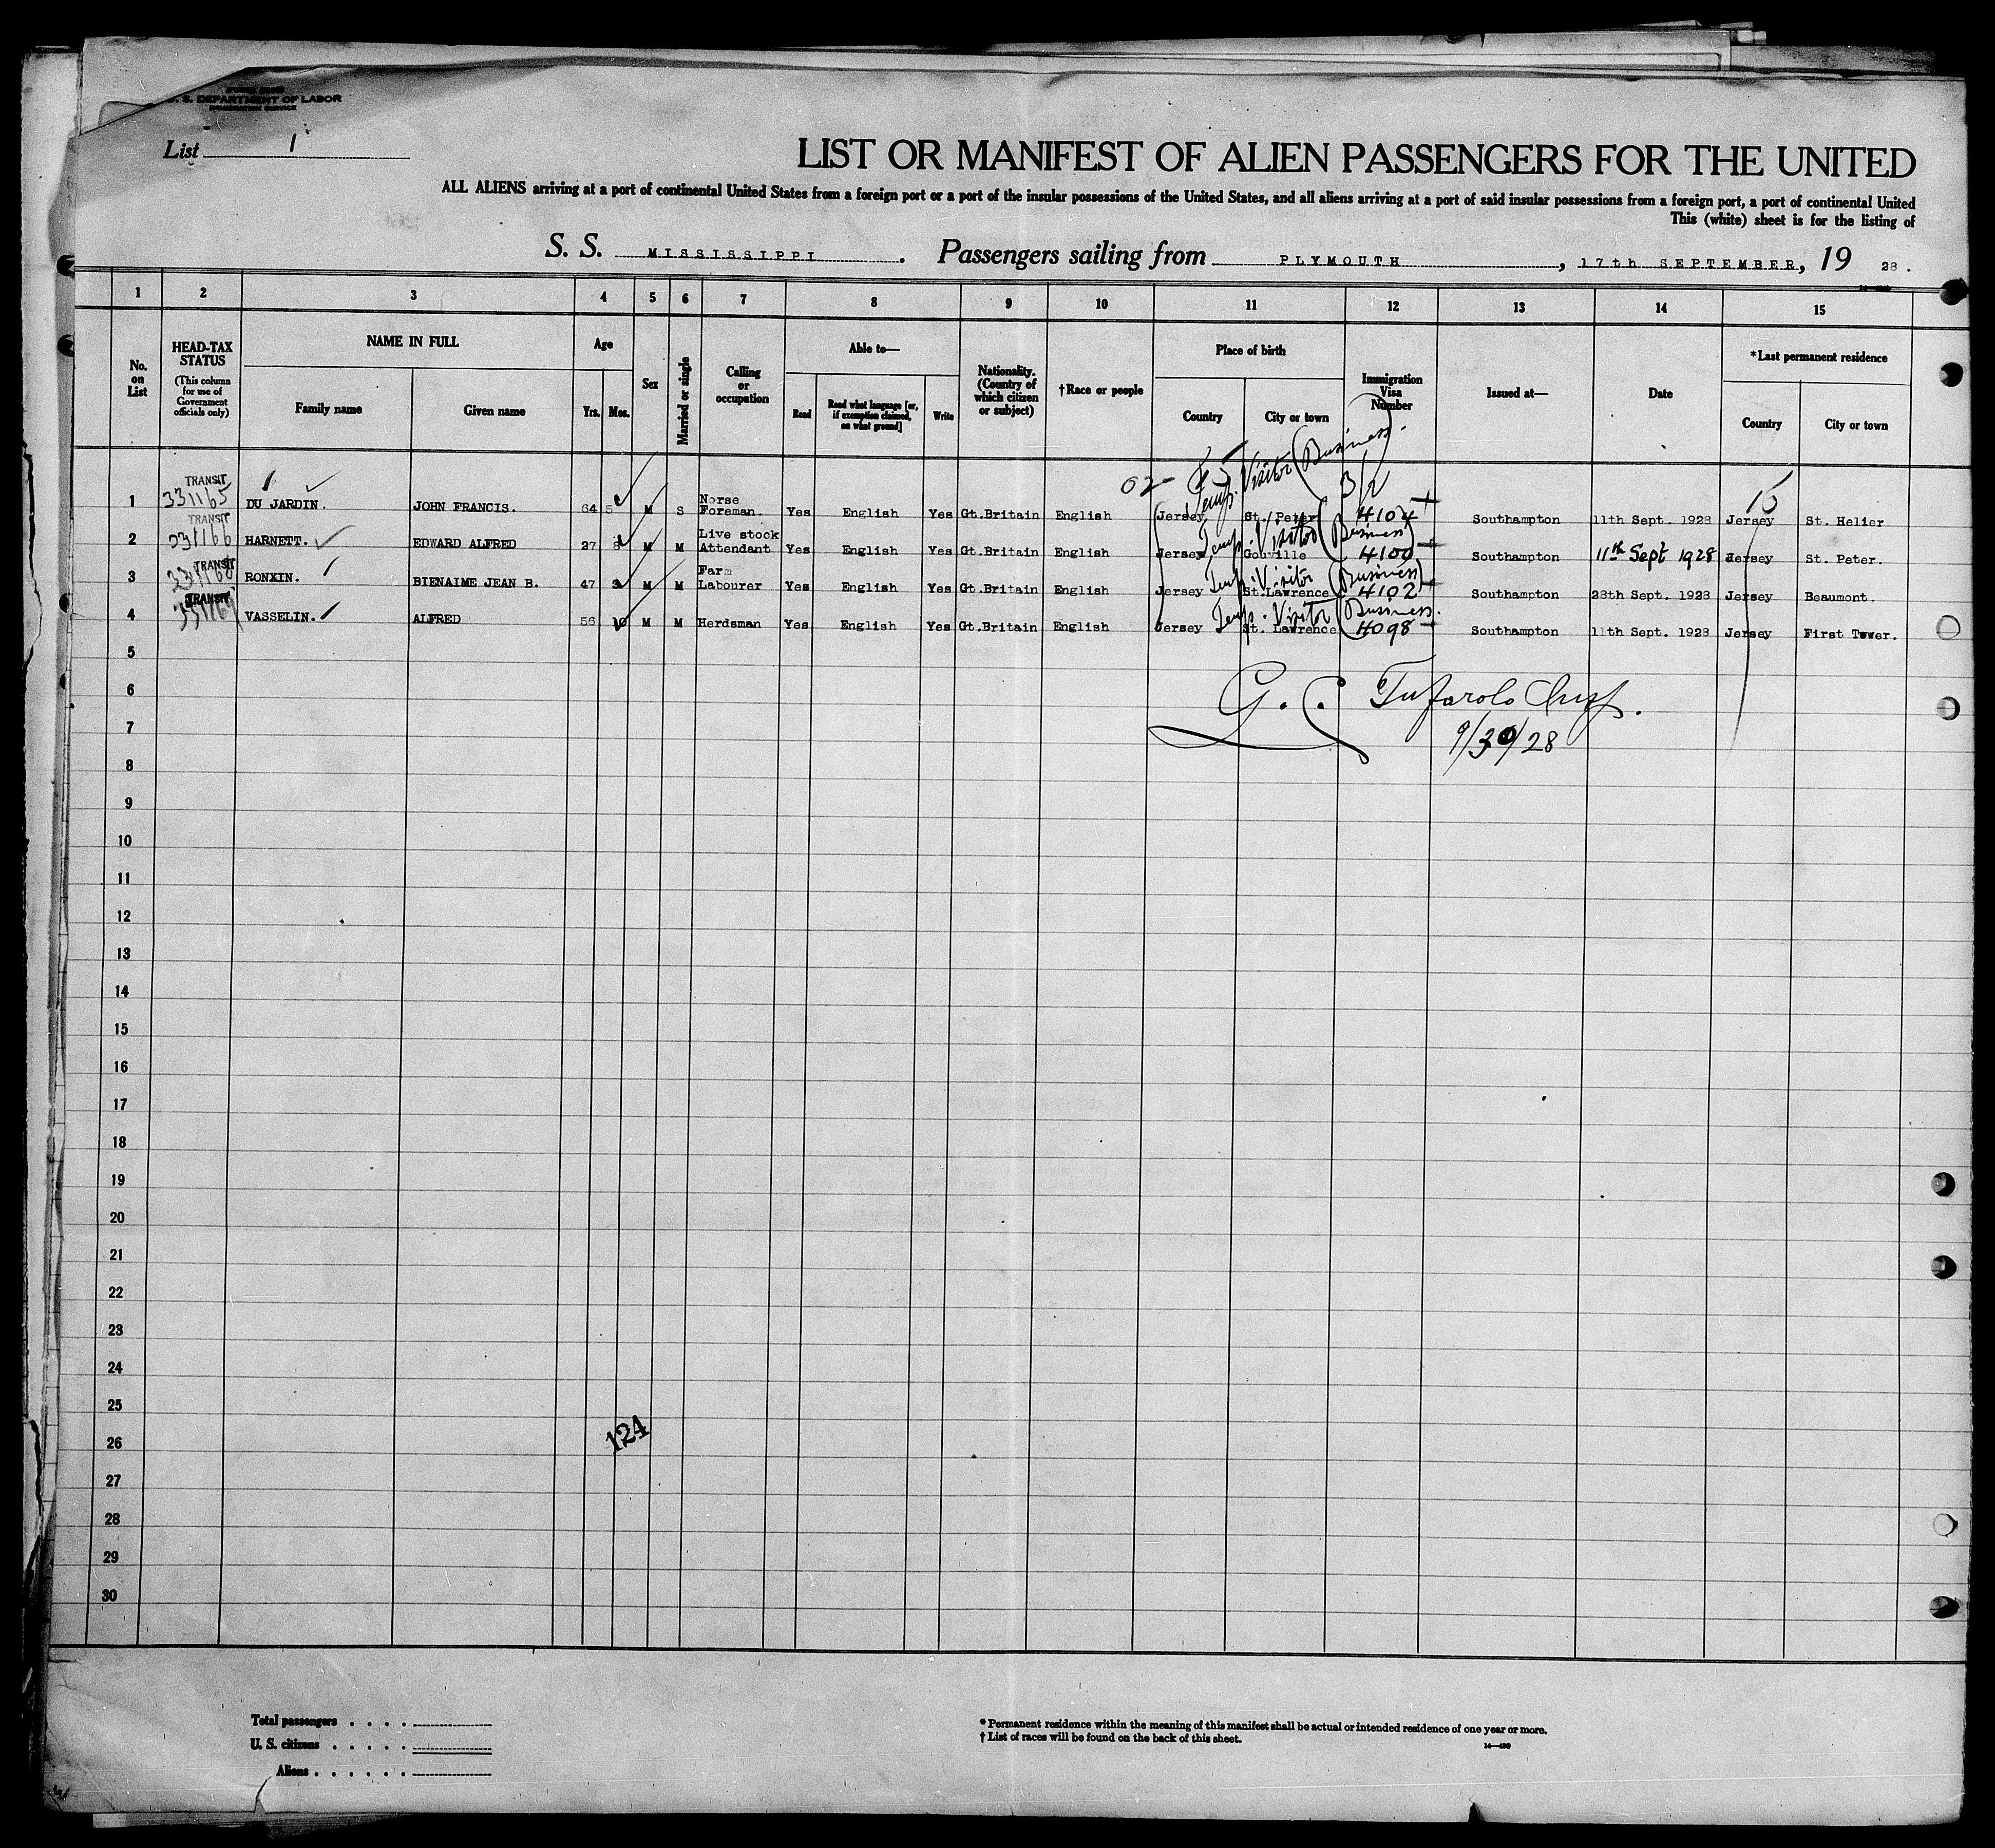 U. S. DEPARTMENT OF LABOR
List 1
LIST OR MANIFEST OF ALIEN PASSENGERS FOR THE UNITED
ALL ALIENS arriving at a port of continental United States from a foreign port or a port of the insular possessions of the United States, and all aliens arriving at a port of said insular possessions from a foreign port, a port of continental United
This (white) sheet is for the listing of
S. S. MISSISSIPPI. Passengers sailing from PLYMOUTH, 17th SEPTEMBER, 19 28.
1 2 3 4 5 6 7 8 9 10 11 12 13 14 15
No. on List
HEAD-TAX STATUS (This column for use of Government officials only)
NAME IN FULL
Family name Given name
Age
Yrs. Mos.
Sex
Married or single
Calling or occupation
Able to—
Read Read what language [or, if exemption claimed, on what ground] Write
Nationality. (Country of which citizen or subject)
†Race or people
Place of birth
Country City or town
Immigration Visa Number
Issued at—
Date
*Last permanent residence
Country City or town
Temp. Visitor (Business).
3/2
TRANSIT
1 331165 DU JARDIN. JOHN FRANCIS. 64 5 M S Norse Foreman. Yes English Yes Gt.Britain English Jersey St. Peter 4104 Southampton 11th Sept. 1928 Jersey St. Helier
TRANSIT Temp. Visitor (Business)
2 331166 HARNETT. EDWARD ALFRED 27 M M Live stock Attendant Yes English Yes Gt.Britain English Jersey Gouville 4100 Southampton 11th Sept 1928 Jersey St. Peter.
TRANSIT Temp. Visitor (Business)
3 RONXIN. BIENAIME JEAN B. 47 M M Farm Labourer Yes English Yes Gt.Britain English Jersey St.Lawrence 4102 Southampton 28th Sept. 1928 Jersey Beaumont.
TRANSIT Temp. Visitor (Business.
4 VASSELIN. ALFRED 56 10 M M Herdsman Yes English Yes Gt.Britain English Jersey St. Lawrence 4098 Southampton 11th Sept. 1928 Jersey First Tower.
5
6
7
9/30/28
8
9
10
11
12
13
14
15
16
17
18
19
20
21
22
23
24
25
124
26
27
28
29
30
Total passengers
U. S. citizens
Aliens
* Permanent residence within the meaning of this manifest shall be actual or intended residence of one year or more.
† List of races will be found on the back of this sheet.